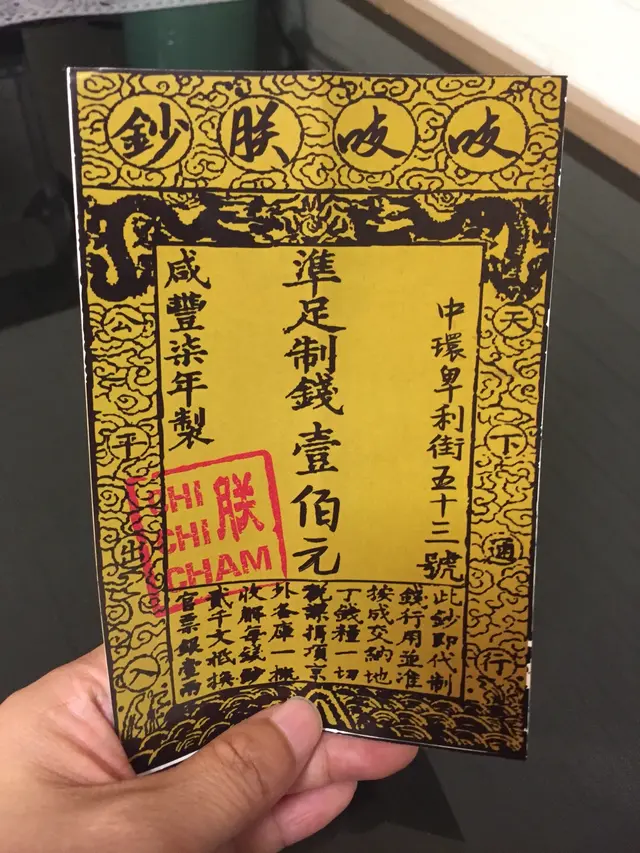 吱吱朕鈔
天下通行
中環卑利街五十三號
準足制錢壹佰元
咸豐柒年製
公平出入
CHI
CHI
CHAM
朕
此鈔即代制
錢行用並准
按成交納地
丁錢糧一切
稅課捐項京
外各庫一概
收解每錢鈔
貳千文抵換
官票銀壹兩